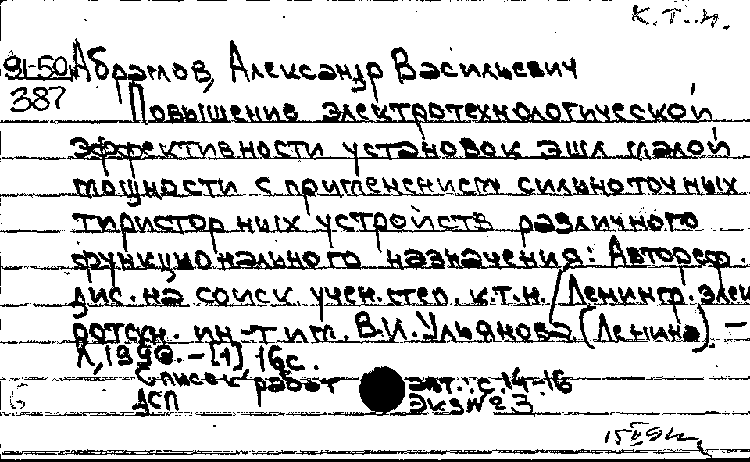 к.т.н.
91-50
387
Абрамов, Александр Васильевич
Повышение электротехнологической
эффективности установок эшл малой
мощности с применением сильноточных
тиристорных устройств различного
функционального назначения: Автореф.
дис. на соиск. учен. степ. к.т.н. /Ленингр. элек
ротехн. ин-т им. В.И. Ульянова (Ленина). —
Л, 1990. - [1] 16 с.
Список работ авт.: с. 14-16
ДСП Экз № 3